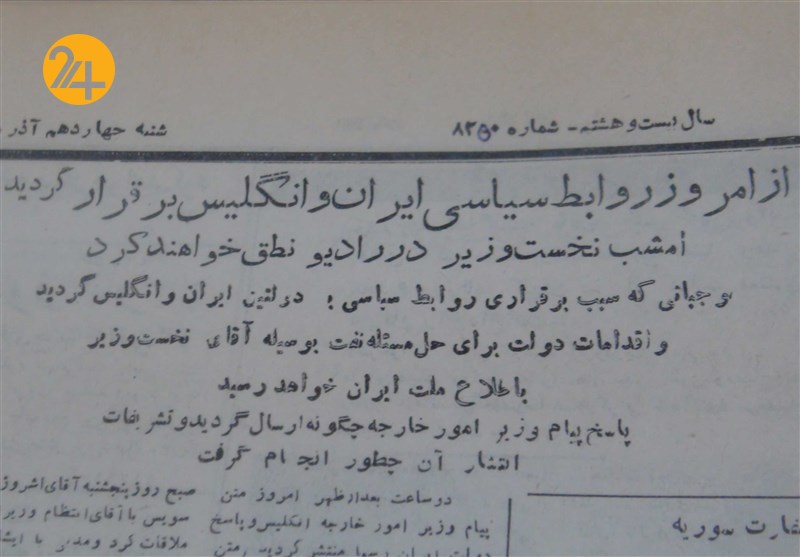 24
سال بیست و هشتم - شماره ۸۲۵۰
شنبه چهاردهم آذر
از امروز روابط سیاسی ایران و انگلیس برقرار گردید
امشب نخست‌وزیر در رادیو نطق خواهند کرد
موجباتی که سبب برقراری روابط سیاسی دولتین ایران و انگلیس گردید
و اقدامات دولت برای حل مسئله نفت بوسیله آقای نخست‌وزیر
باطلاع ملت ایران خواهد رسید
پاسخ پیام وزیر امور خارجه چگونه ارسال گردید و تشریفات
انتشار آن چطور انجام گرفت
در ساعت بعدازظهر امروز متن
پیام وزیر امور خارجه انگلیس و پاسخ
دولت ایران رسما منتشر گردید
صبح روز پنجشنبه آقای
سویس با آقای انتظام وزیر
ملاقات کرد و
سوریه